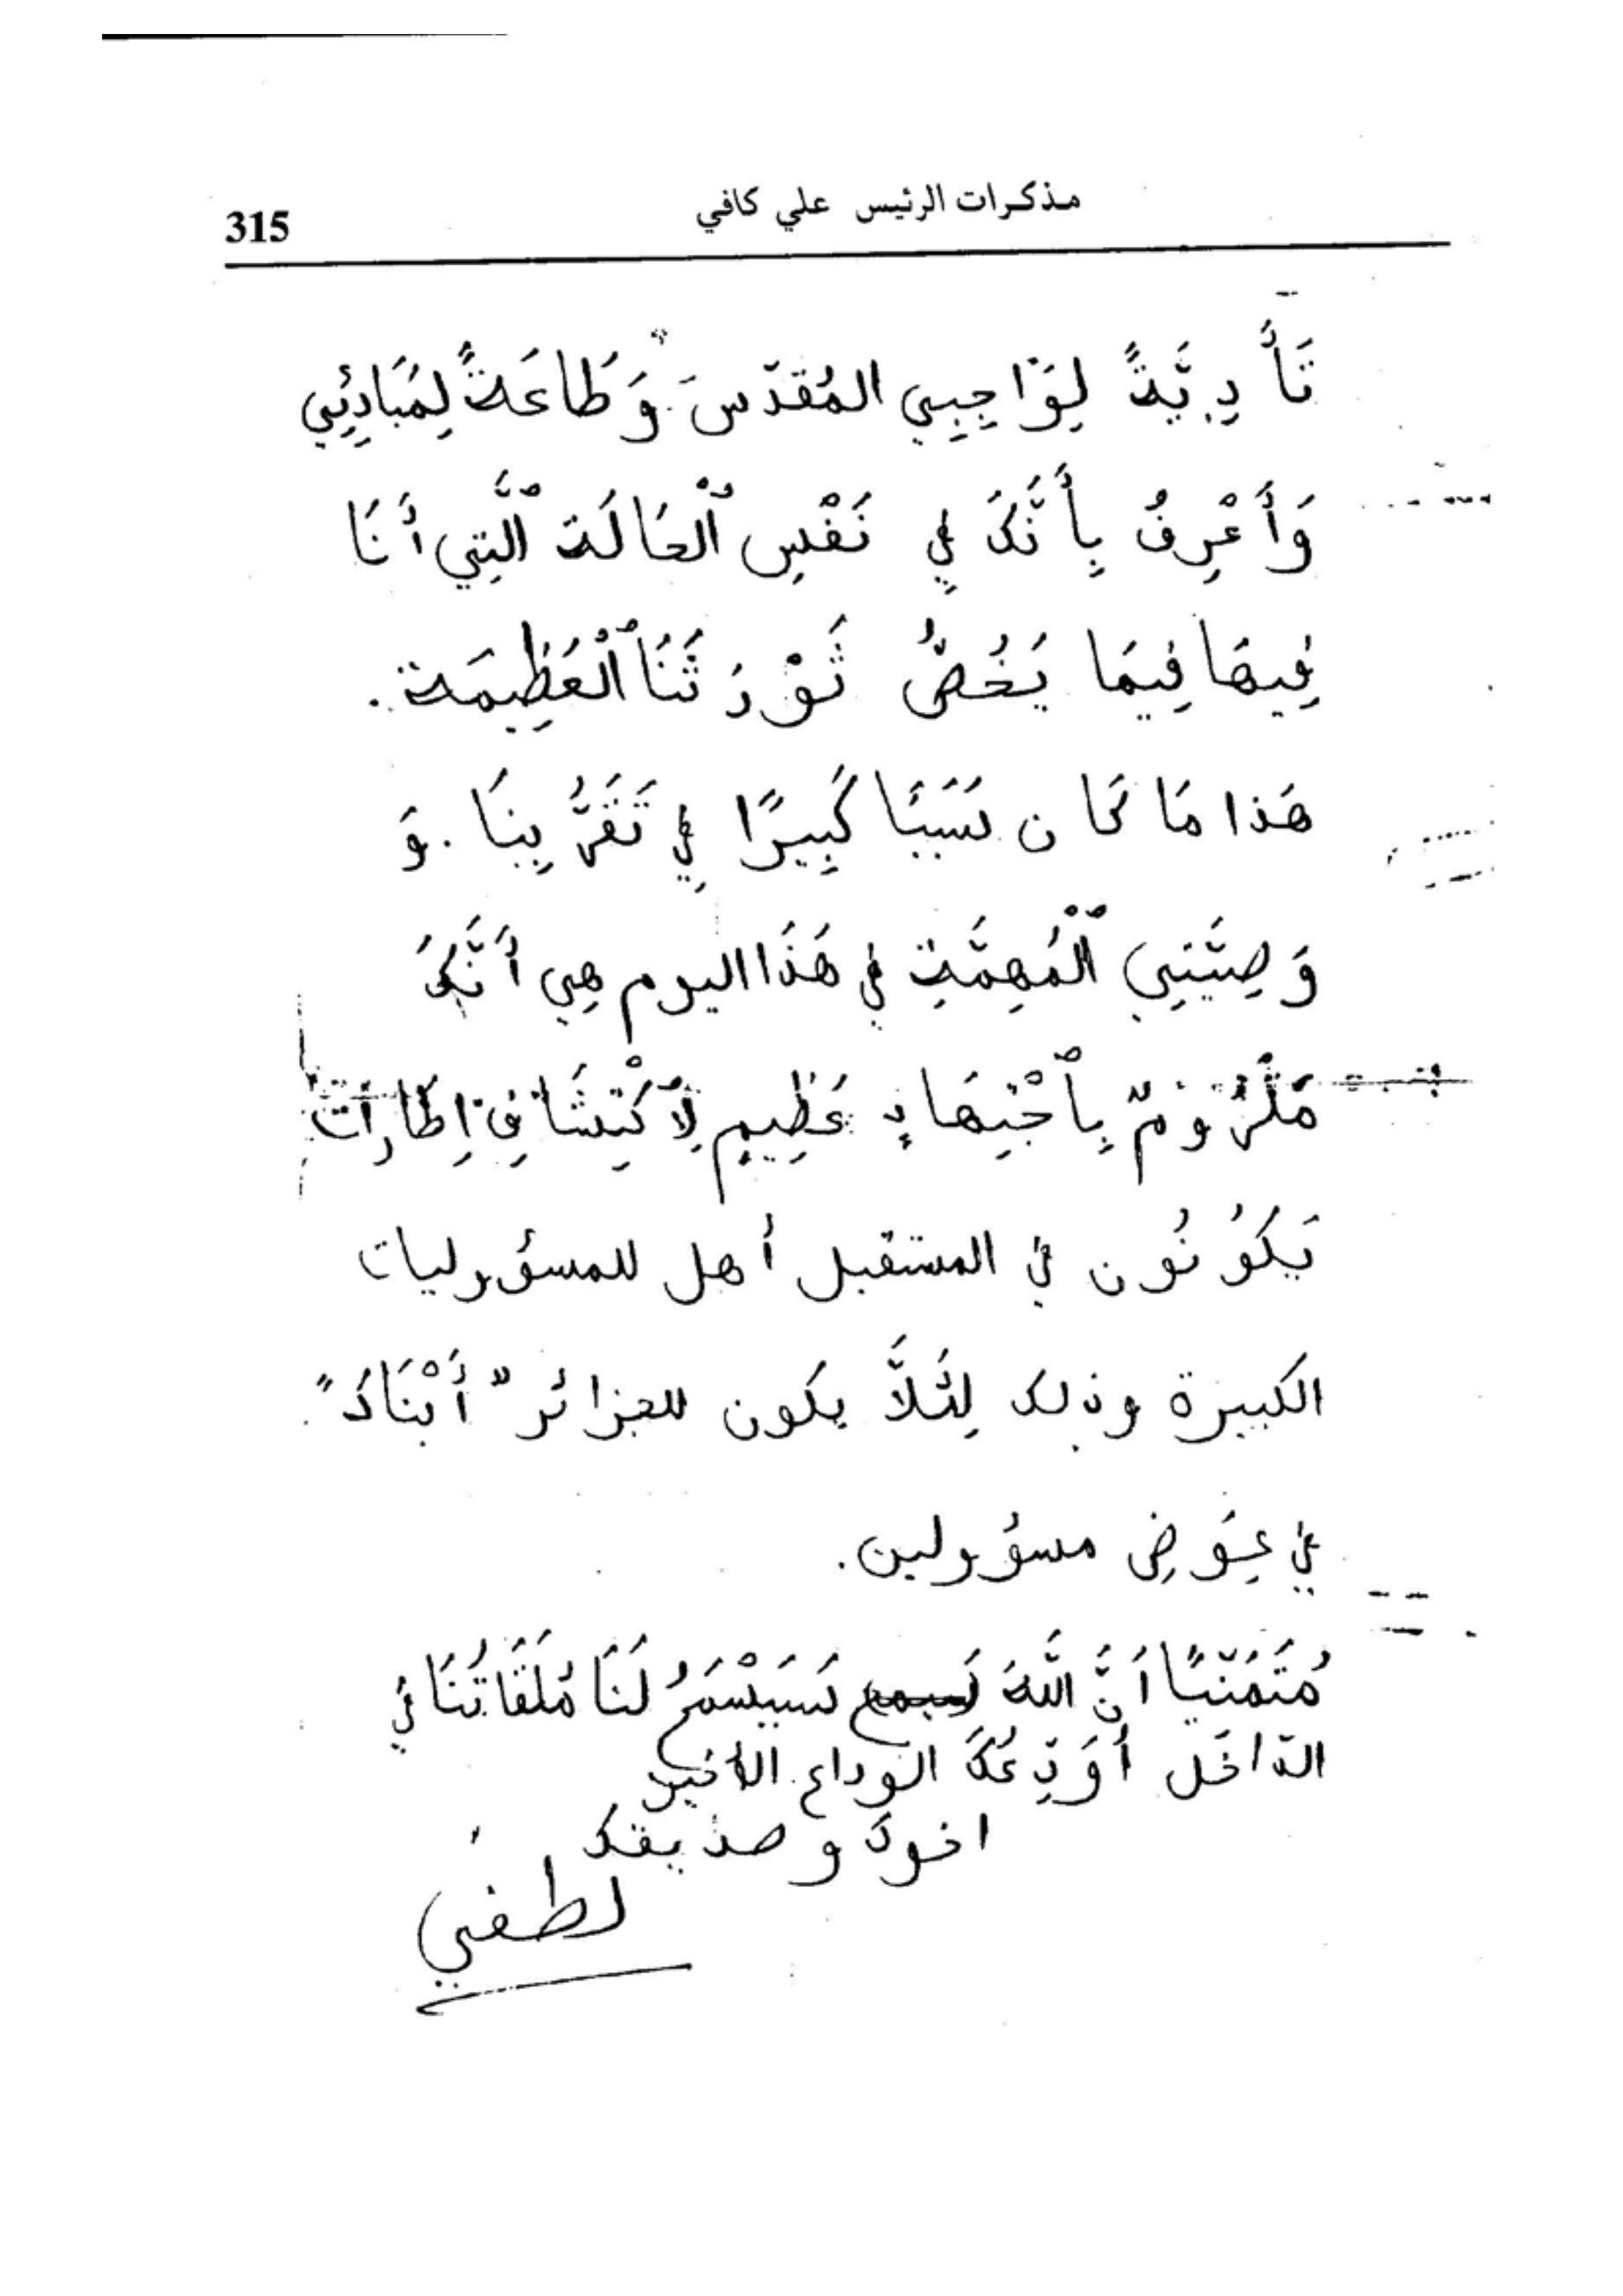 مذكرات الرئيس علي كافي
315
تَأْدِيَّةً لِوَاجِبِي المُقدّسَ وَطَاعَةً لِمَبَادِئِي
وَأَعْرِفُ بِأَنَّكَ فِي نَفْسِ ٱلْحَالَة الَّتِي أَنَا
فِيهَا فِيمَا يَخُصُّ ثَوْرَتَنَا ٱلْعَظِيمَة.
هَذا مَا كَان سَبَبًا كَبِيرًا فِي تَقَرُّبِنَا. وَ
وَصِيَّتِي ٱلْمُهِمَّةِ فِي هَذَا اليوم هِي أَنَّكَ
مَلْزُومٌ بِٱجْتِهَادٍ عَظِيمٍ لِٱكْتِشَافِ اِطَارَات
يَكُونُون في المستقبل أهل للمسؤوليات
الكبيرة وذلك لِئَلاَّ يكون للجزائر "أَبْنَاكَ"
في عِوَضِ مسؤولين.
مُتَمَنّيًا اَنَّ اللَّهَ سَيَسْمَحُ لَنَا مُلَقَاتَنَا في
الدّاخَل أُوَدِّعُكَ الوداع الأخير
اخوك وصديقك
لطفي